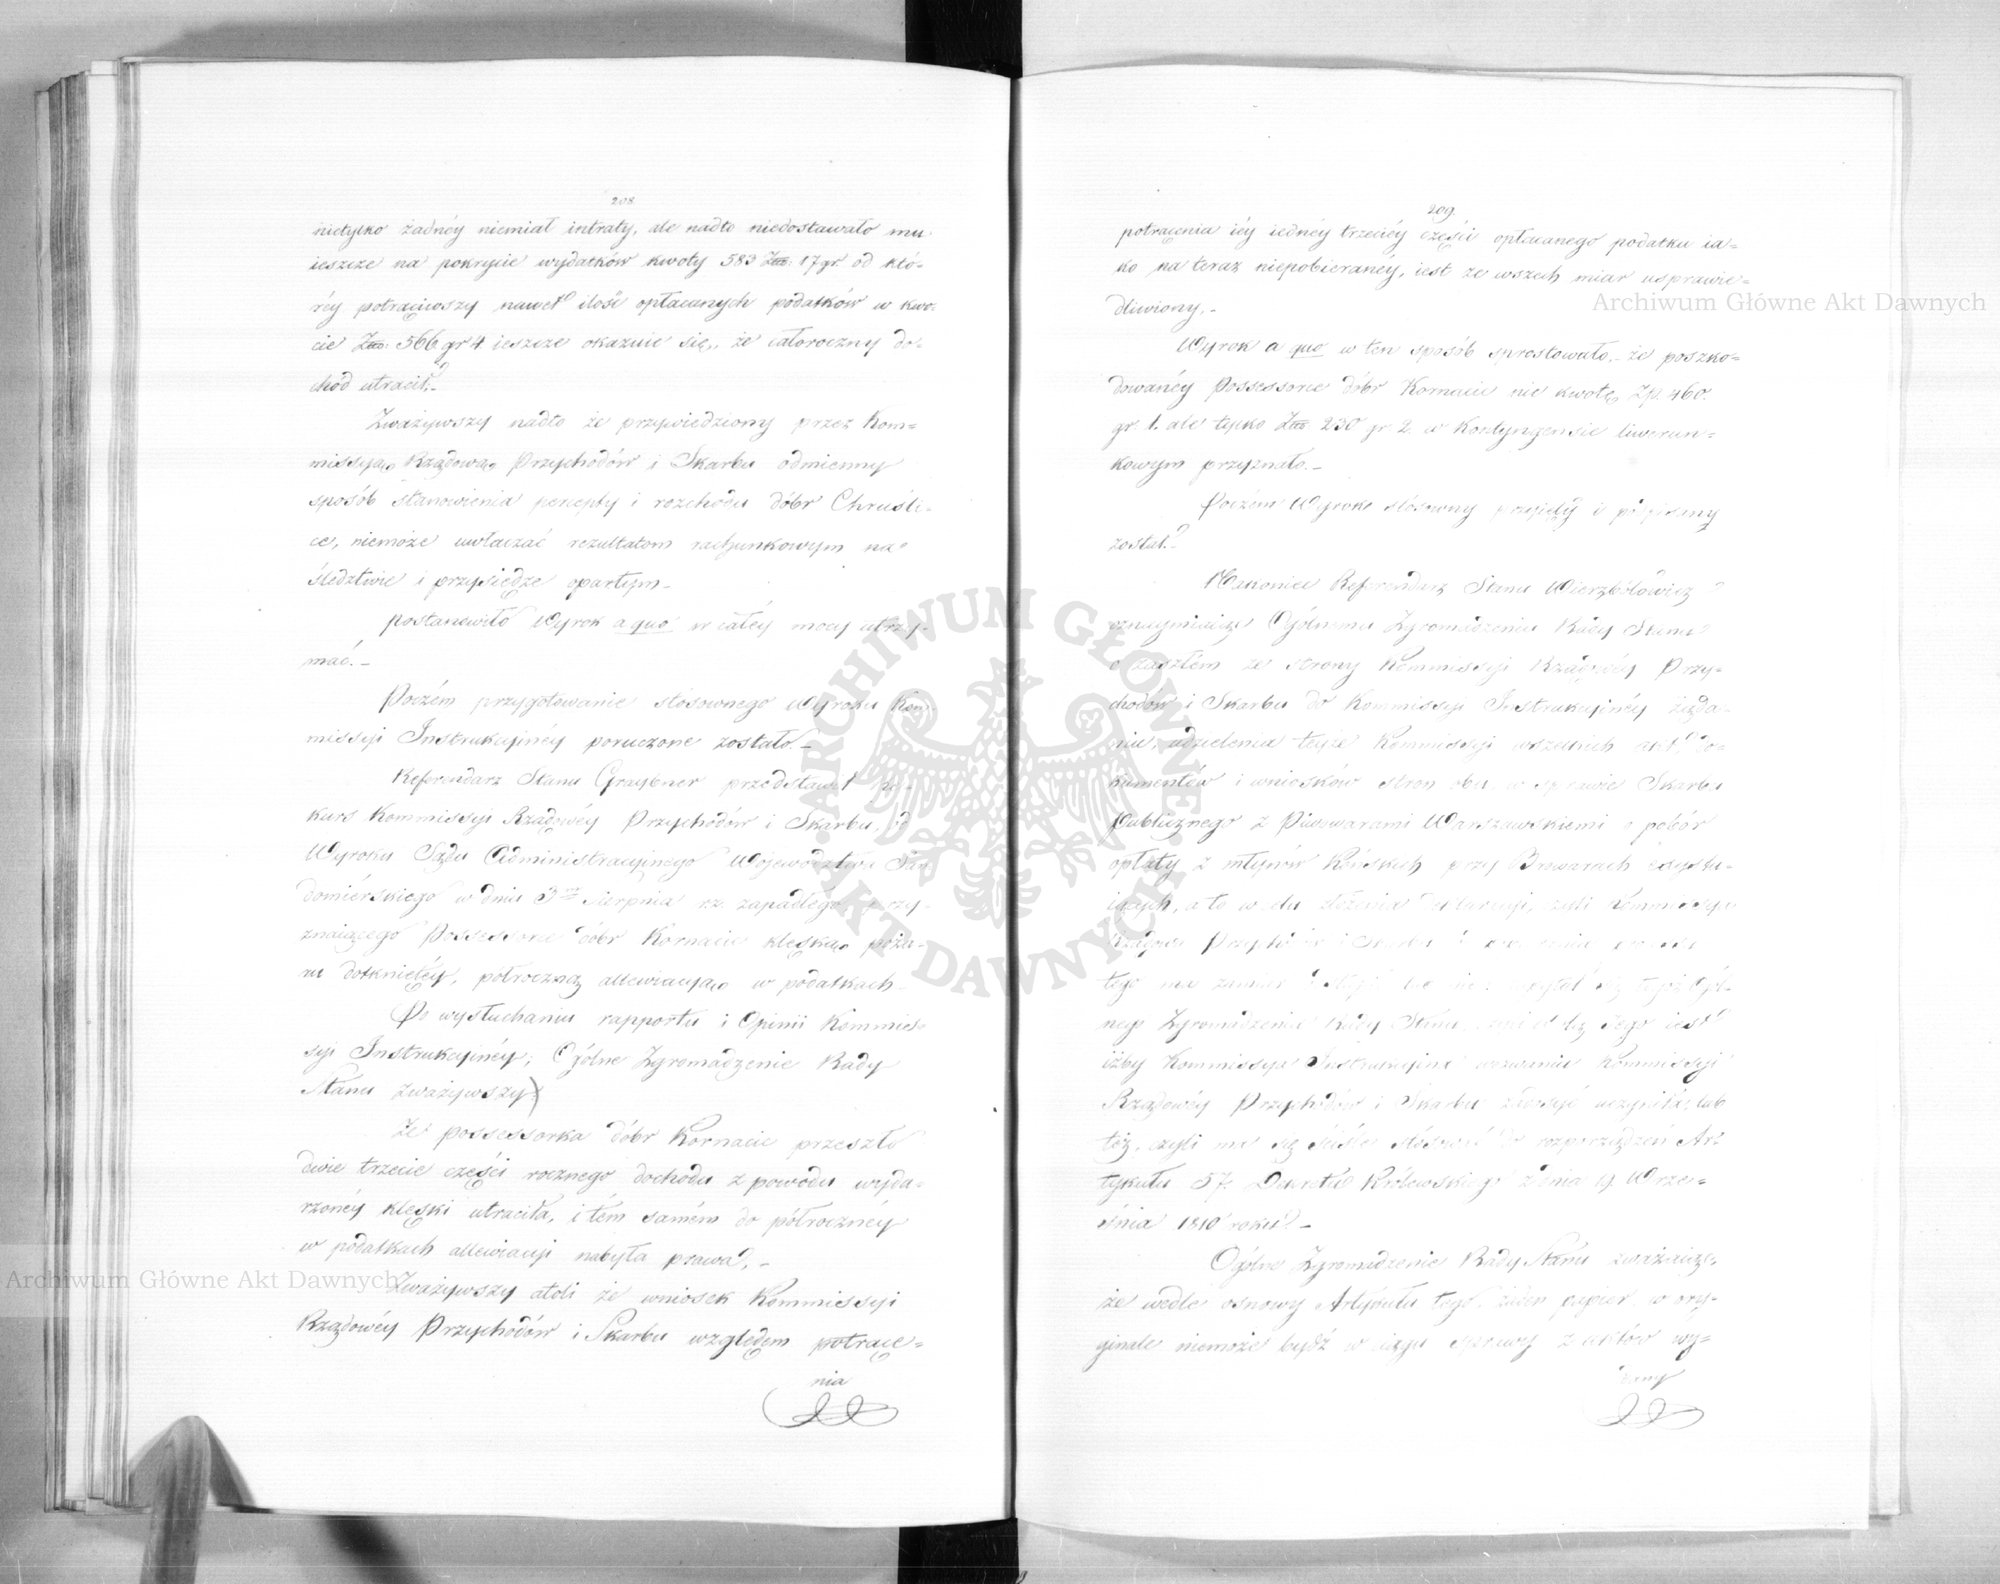 208.
nietylko żadnéy niemiał intraty, ale nadto niedostawało mu
ieszcze na pokrycie wydatków kwoty 583 Złt: 17 gr. od któ=
réy potrąciwszy nawet ilość opłacanych podatków w kwo=
cie Złt: 566 gr 4 ieszcze okazuie się, że całoroczny do=
chód utracił.
Zważywszy nadto że przywiedziony przez Kom=
missyią Rządową Przychodów i Skarbu odmienny
sposób stanowienia percepty i rozchodu dóbr Chruśli=
ce, niemoże uwłaczać rezultatom rachunkowym na
śledztwie i przysiędze opartym.
postanowiło Wyrok a quo w całéy mocy utrzy=
mać.
Poczém przygotowanie stósownego Wyroku Kom=
missyi Instrukcyinéy poruczone zostało.
Referendarz Stanu Graybner przedstawił re=
kurs Kommissyi Rządowéy Przychodów i Skarbu, od
Wyroku Sądu Administracyinego Województwa San=
domierskiego w dniu 3m Sierpnia rz. zapadłego, przy=
znaiącego Possessorce dóbr Kornacie klęską poża=
ru dotkniętéy, półroczną allewiacyią w podatkach.
Po wysłuchaniu rapportu i Opinii Kommis=
syi Instrukcyinéy; Ogólne Zgromadzenie Rady
Stanu zważywszy
Że possessorka dóbr Kornacie przeszło
dwie trzecie części rocznego dochodu z powodu wyda=
rzonéy klęski utraciła, i tém samém do półrocznéy
w podatkach allewiacyi nabyła prawa.
Zważywszy atoli że wniosek Kommissyi
Rządowéy Przychodów i Skarbu względem potrące=
nia
209.
potrącenia iéy iednéy trzeciéy części opłacanego podatku ia=
ko na teraz niepobieranéy, iest ze wszech miar usprawie=
dliwiony.
Wyrok a quo w ten sposób sprostowało, że poszko=
dowanéy Possessorce dóbr Kornacie nie kwotę Zp. 460.
gr. 1. ale tylko Złt 230 gr 2. w Kontyngensie liwerun=
kowym przyznało.
Poczém Wyrok stósowny przyięty i podpisany
został.
Nakoniec Referendarz Stanu Wierzbołowicz
oznaymiaiąc Ogólnemu Zgromadzeniu Rady Stanu
o zaszłém ze strony Kommissyi Rządowéy Przy=
chodów i Skarbu do Kommissyi Instrukcyinéy żąda=
nie, udzielenia teyże Kommissyi wszelkich akt, do=
kumentów i wniosków stron obu w sprawie Skarbu
Publicznego z Piwowarami Warszawskiemi o pobór
opłaty z młynów Końskich przy Browarach exystu=
iących, a to w celu złożenia deklaracyi, czyli Kommissya
Rządowa Przychodów i Skarbu
tego ma zamiar Ogól=
nego Zgromadzenia Rady Stanu, iest
iżby Kommissya Instrukcyina wezwaniu Kommissyi
Rządowéy Przychodów i Skarbu zadosyć uczyniła, lub
też, czyli ma się ściśle stósować do rozporządzeń Ar=
tykułu 37. Dekretu Królewskiego z dnia 19 Wrze=
śnia 1810 roku?
Ogólne Zgromadzenie Rady Stanu zważaiąc,
że wedle osnowy Artykułu tego, żaden papier w ory=
ginale niemoże bydź w ciągu sprawy z aktów wy=
dany
Archiwum Główne Akt Dawnych
Archiwum Główne Akt Dawnych
ARCHIWUM GŁÓWNE AKT DAWNYCH